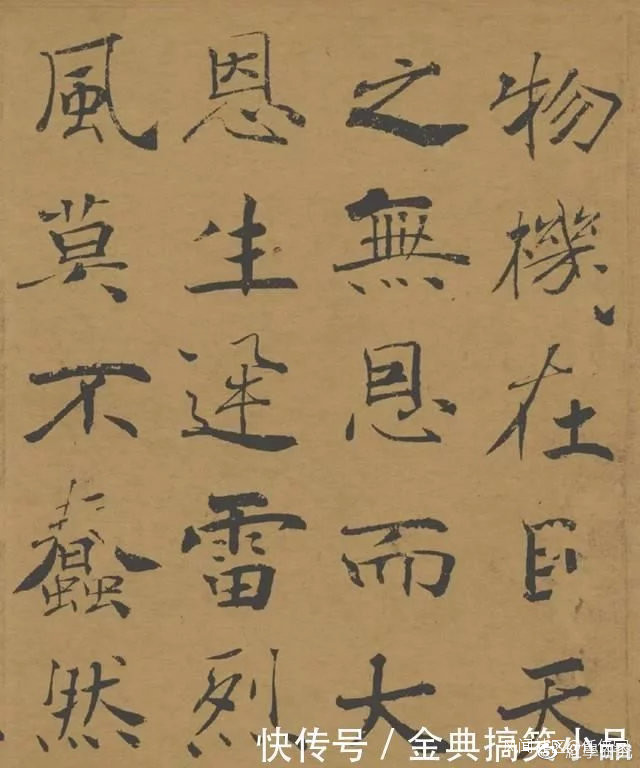 物機在目天
之無恩而大
恩生迅雷烈
風莫不蠢然
快传号 / 金典搞笑小品